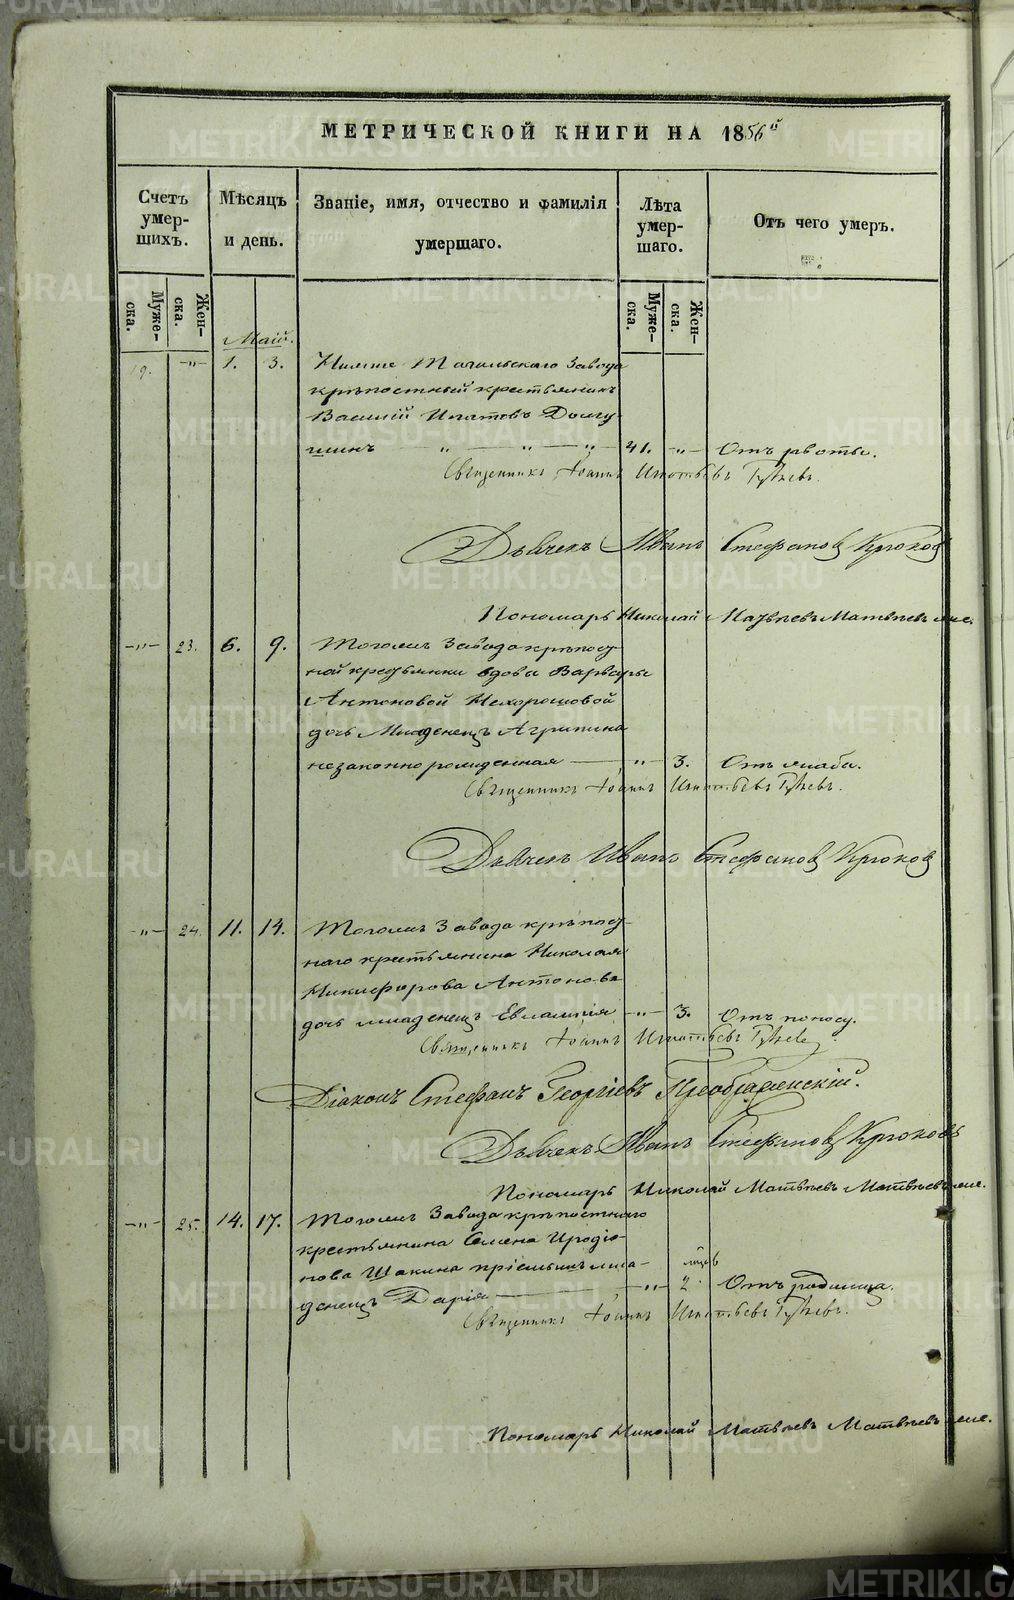 МЕТРИЧЕСКОЙ КНИГИ НА 1856й
Счетъ умер- шихъ.
Мѣсяцъ и день.
Званіе, имя, отчество и фамилія умершаго.
Лѣта умер- шаго.
Отъ чего умер.
Муже- ска.
Жен- ска.
Муже- ска.
Жен- ска.
Маій.
19. —„— 1. 3. Нижне Тагильскаго Завода
крѣпостный крестьянинъ
Василій Игнатовъ Долгу-
шинъ — „ — „ — „ — 41. —„— Отъ рвоты.
Священникъ Іоаннъ Игнатьевъ
Дьячекъ Иванъ Стефановъ Крюков
Пономарь Николай Матвѣевъ Матвѣевъ
—„— 23. 6. 9. Тогожъ Завода крѣпост
ной крестьянки вдовы Варвары
Антоновой Нехорошовой
дочь младенецъ Агрипина
незаконнорожденная — „ — 3. Отъ жабы.
Священникъ Іоаннъ Игнатьевъ
Дьячекъ Иванъ Стефановъ Крюков
—„— 24. 11. 14. Тогожъ Завода крѣпост
наго крестьянина Николая
Никифорова Антонова
дочь младенецъ Евлампія —„— 3. Отъ поносу.
Священникъ Іоаннъ Игнатьевъ
Діаконъ Стефанъ Георгіевъ Преображенскій.
Дьячекъ Иванъ Стефановъ Крюковъ
Пономарь Николай Матвѣевъ Матвѣевъ
—„— 25. 14. 17. Тогожъ Завода крѣпостнаго
крестьянина Семена Иродіо-
нова Шакина пріемышъ мла-
денецъ Дарія — —„— 2 Отъ родимца.
Священникъ Іоаннъ Игнатьевъ
Пономарь Николай Матвѣевъ Матвѣевъ
METRIKI.GASO-URAL.RU